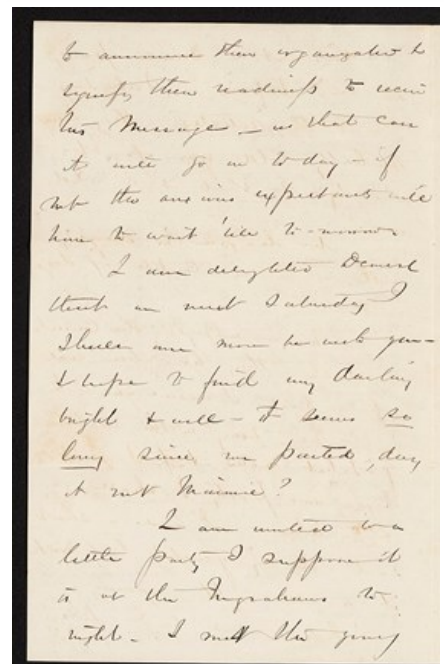 to announce their organization &
signify their readiness to receive
his Message – in that case
it will go in to day – if
not the anxious expectants will
have to wait 'till to-morrow
I am delighted Dearest
that on next Saturday I
shall once more be with you –
I hope to find my darling
bright & well – it seems so
long since we parted, does
it not Minnie?
I am invited to a
little party I suppose it
is at the Ingrahams to
night – I met the young